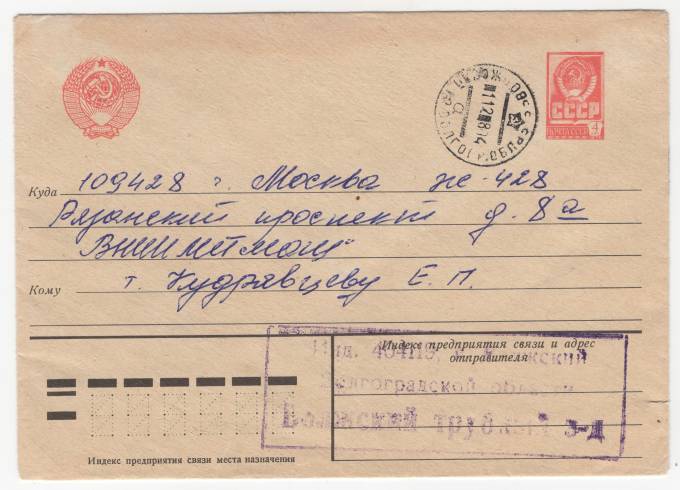 СССР
ПОЧТА СССР 4
Куда 109428 г. Москва ж-428
Рязанский проспект д. 8а
ВНИИМЕТМАШ
Кому т. Кудрявцеву Е. П.
Индекс предприятия связи и адрес отправителя
Инд. 404119, г. Волжский
Волгоградской области
Волжский трубный з-д
Индекс предприятия связи места назначения